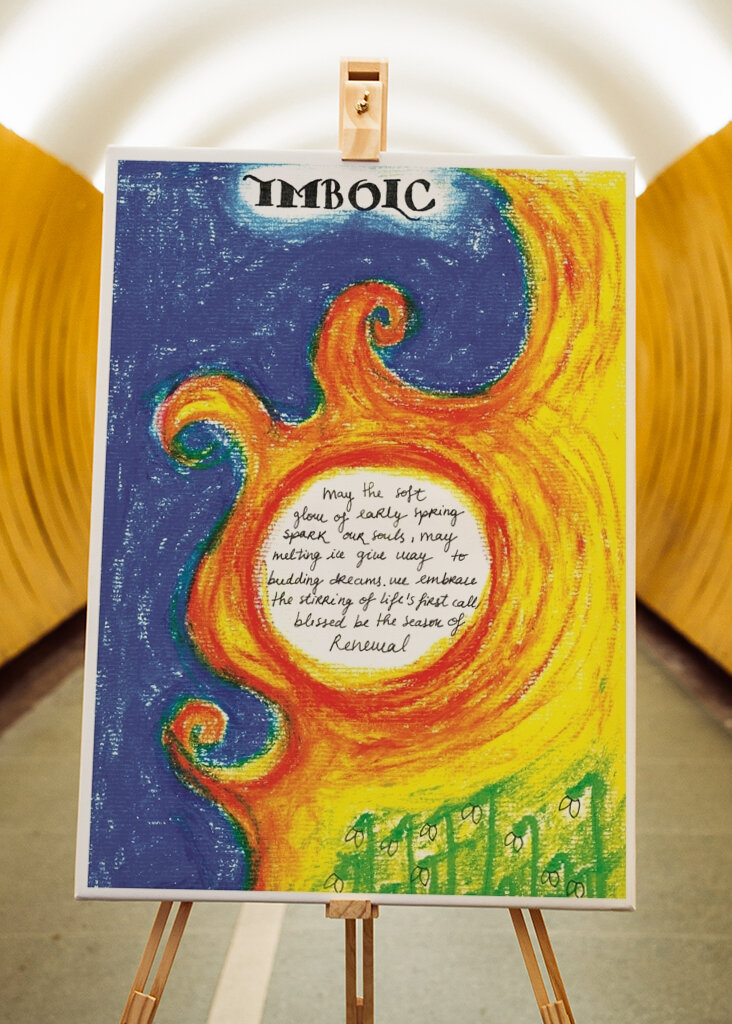 IMBOLC
may the soft
glow of early spring
spark our souls, may
melting ice give way to
budding dreams. we embrace
the stirring of life's first call,
blessed be the season of
Renewal